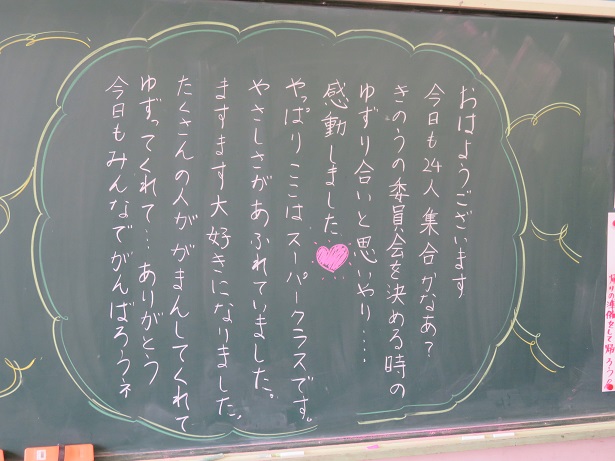 おはようございます
今日も24人集合かなあ?
きのうの委員会を決める時の
ゆずり合いと思いやり・・・・
感動しました
やっぱりここはスーパークラスです。
やさしさがあふれていました。
ますます大好きになりました。
たくさんの人ががまんしてくれて
ゆずってくれて・・・ありがとう
今日もみんなでがんばろうネ